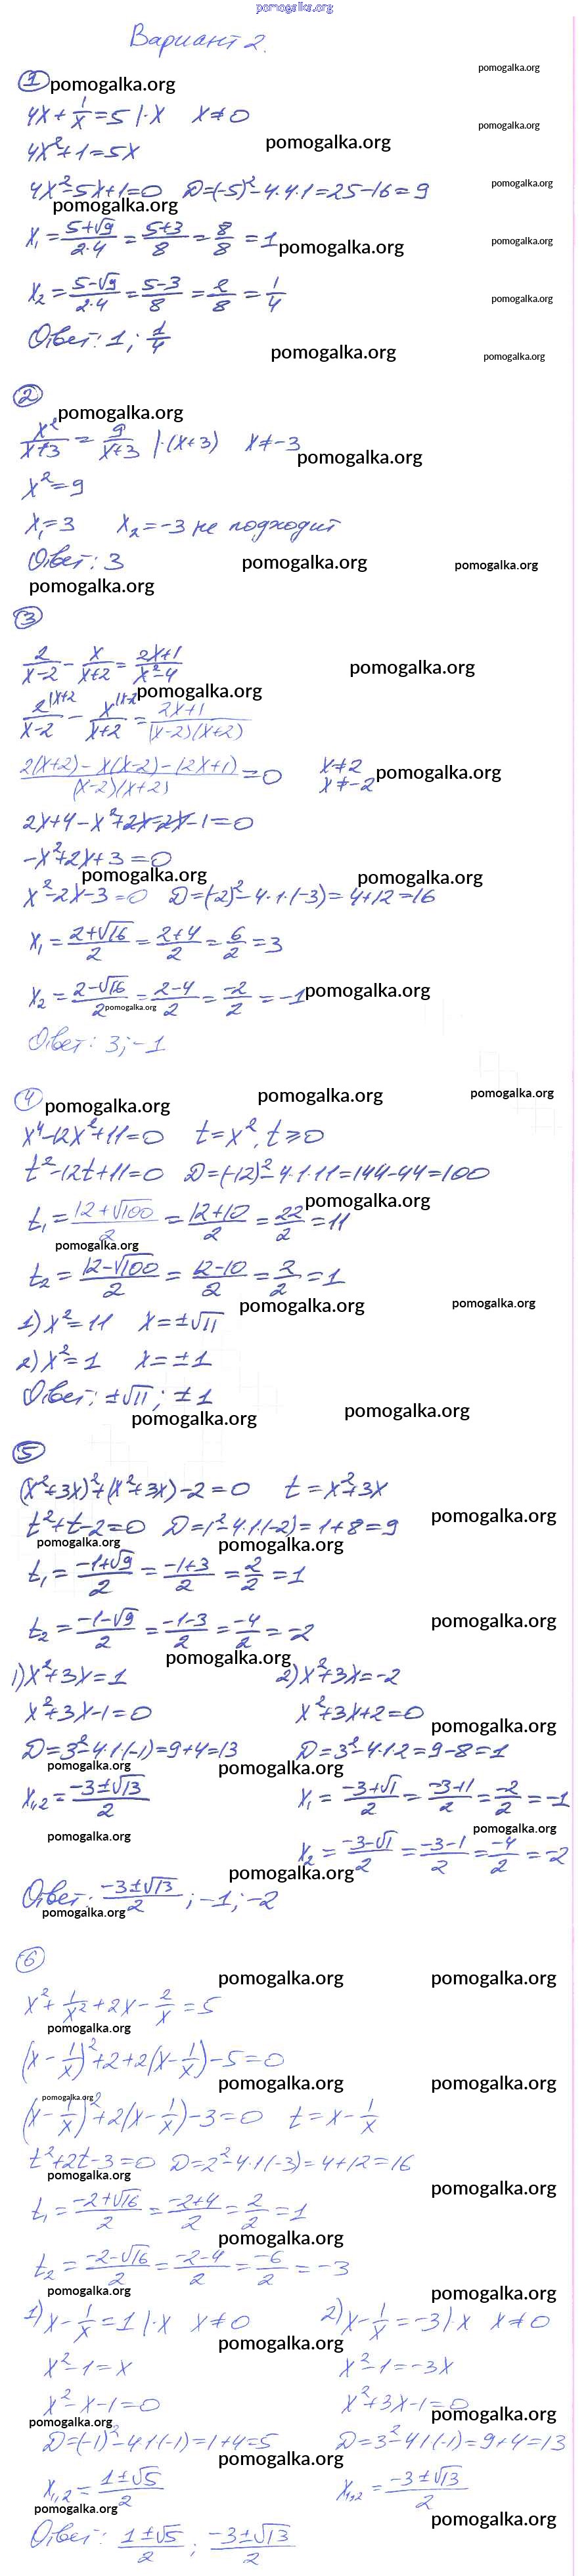 pomogalka.org
Вариант 2.
pomogalka.org
① pomogalka.org
4x + 1/x = 5 |·x   x ≠ 0
pomogalka.org
4x² + 1 = 5x
pomogalka.org
4x² - 5x + 1 = 0   D = (-5)² - 4·4·1 = 25 - 16 = 9
pomogalka.org
pomogalka.org
x₁ = (5+√9)/(2·4) = (5+3)/8 = 8/8 = 1
pomogalka.org
pomogalka.org
x₂ = (5-√9)/(2·4) = (5-3)/8 = 2/8 = 1/4
pomogalka.org
Ответ: 1; 1/4
pomogalka.org
pomogalka.org
②
pomogalka.org
x²/(x+3) = 9/(x+3) |·(x+3)   x ≠ -3
pomogalka.org
x² = 9
x₁ = 3   x₂ = -3 не подходит
Ответ: 3
pomogalka.org
pomogalka.org
pomogalka.org
③
2/(x-2) - x/(x+2) = (2x+1)/(x²-4)
pomogalka.org
pomogalka.org
2^|x+2/(x-2) - x^|x-2/(x+2) = (2x+1)/((x-2)(x+2))
(2(x+2) - x(x-2) - (2x+1))/((x-2)(x+2)) = 0   x ≠ 2
x ≠ -2
pomogalka.org
2x + 4 - x² + 2x - 2x - 1 = 0
-x² + 2x + 3 = 0
pomogalka.org
pomogalka.org
x² - 2x - 3 = 0   D = (-2)² - 4·1·(-3) = 4 + 12 = 16
x₁ = (2+√16)/2 = (2+4)/2 = 6/2 = 3
x₂ = (2-√16)/2 = (2-4)/2 = -2/2 = -1
pomogalka.org
pomogalka.org
Ответ: 3; -1
④ pomogalka.org
pomogalka.org
pomogalka.org
x⁴ - 12x² + 11 = 0   t = x², t ≥ 0
t² - 12t + 11 = 0   D = (-12)² - 4·1·11 = 144 - 44 = 100
pomogalka.org
t₁ = (12+√100)/2 = (12+10)/2 = 22/2 = 11
pomogalka.org
t₂ = (12-√100)/2 = (12-10)/2 = 2/2 = 1
pomogalka.org
pomogalka.org
1) x² = 11   x = ±√11
2) x² = 1   x = ±1
Ответ: ±√11; ±1
pomogalka.org
pomogalka.org
⑤
(x²+3x)² + (x²+3x) - 2 = 0   t = x²+3x
pomogalka.org
t² + t - 2 = 0   D = 1² - 4·1·(-2) = 1 + 8 = 9
pomogalka.org
pomogalka.org
t₁ = (-1+√9)/2 = (-1+3)/2 = 2/2 = 1
t₂ = (-1-√9)/2 = (-1-3)/2 = -4/2 = -2
pomogalka.org
pomogalka.org
1) x² + 3x = 1   2) x² + 3x = -2
x² + 3x - 1 = 0   x² + 3x + 2 = 0
pomogalka.org
D = 3² - 4·1·(-1) = 9 + 4 = 13   D = 3² - 4·1·2 = 9 - 8 = 1
pomogalka.org
pomogalka.org
x₁,₂ = (-3±√13)/2   x₁ = (-3+√1)/2 = (-3+1)/2 = -2/2 = -1
pomogalka.org
pomogalka.org
x₂ = (-3-√1)/2 = (-3-1)/2 = -4/2 = -2
pomogalka.org
Ответ: (-3±√13)/2; -1; -2
pomogalka.org
⑥
pomogalka.org
pomogalka.org
x² + 1/x² + 2x - 2/x = 5
pomogalka.org
(x - 1/x)² + 2 + 2(x - 1/x) - 5 = 0
pomogalka.org
pomogalka.org
pomogalka.org
(x - 1/x)² + 2(x - 1/x) - 3 = 0   t = x - 1/x
t² + 2t - 3 = 0   D = 2² - 4·1·(-3) = 4 + 12 = 16
pomogalka.org
pomogalka.org
t₁ = (-2+√16)/2 = (-2+4)/2 = 2/2 = 1
pomogalka.org
t₂ = (-2-√16)/2 = (-2-4)/2 = -6/2 = -3
pomogalka.org
pomogalka.org
1) x - 1/x = 1 |·x   x ≠ 0   2) x - 1/x = -3 |·x   x ≠ 0
pomogalka.org
x² - 1 = x   x² - 1 = -3x
x² - x - 1 = 0   x² + 3x - 1 = 0
pomogalka.org
pomogalka.org
D = (-1)² - 4·1·(-1) = 1 + 4 = 5   D = 3² - 4·1·(-1) = 9 + 4 = 13
pomogalka.org
x₁,₂ = (1±√5)/2   x₁,₂ = (-3±√13)/2
pomogalka.org
pomogalka.org
Ответ: (1±√5)/2; (-3±√13)/2